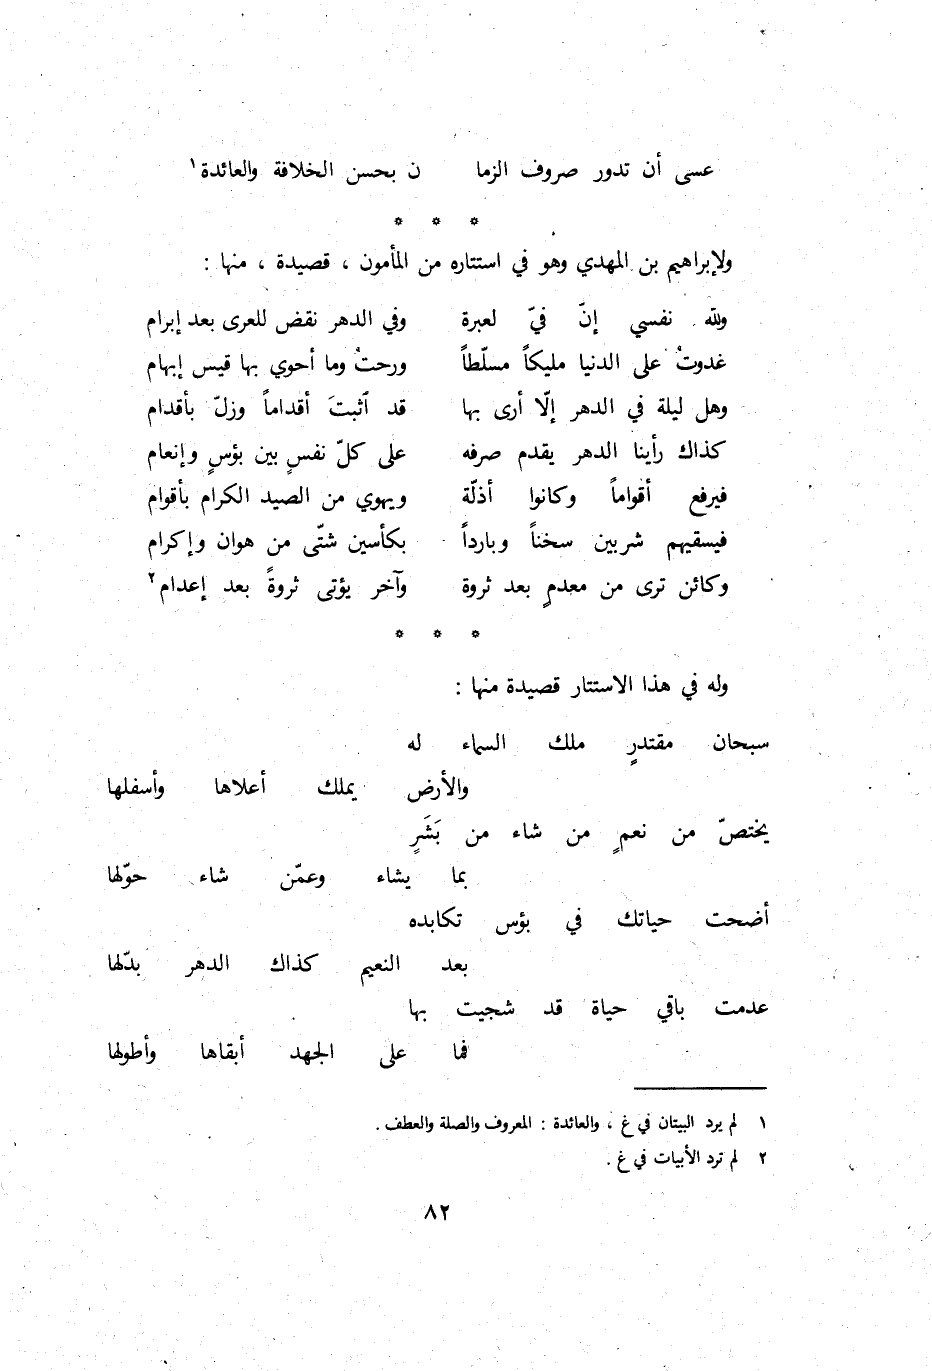 عسى أن تدور صروف الزما ن بحسن الخلافة والعائدة١
* * *
ولإبراهيم بن المهدي وهو في استتاره من المأمون ، قصيدة ، منها :
ولله نفسي إنّ فيّ لعبرة وفي الدهر نقض للعرى بعد إبرام
غدوتُ على الدنيا مليكاً مسلّطاً ورحتُ وما أحوي بها قيس إبهام
وهل ليلة في الدهر إلّا أرى بها قد ٱثبتَ أقداماً وزلّ بأقدام
كذاك رأينا الدهر يقدم صرفه على كلّ نفسٍ بين بؤسٍ وإنعام
فيرفع أقواماً وكانوا أذلّة ويهوي من الصيد الكرام بأقوام
فيسقيهم شربين سخناً وبارداً بكأسين شتّى من هوان وإكرام
وكائن ترى من معدمٍ بعد ثروة وآخر يؤتى ثروةً بعد إعدام٢
* * *
وله في هذا الاستتار قصيدة منها :
سبحان مقتدرٍ ملك السماء له
والأرض يملك أعلاها وأسفلها
يختصّ من نعمٍ من شاء من بَشَرٍ
بما يشاء وعمّن شاء حوّلها
أضحت حياتك في بؤس تكابده
بعد النعيم كذاك الدهر بدّلها
عدمت باقي حياة قد شجيت بها
فما على الجهد أبقاها وأطولها
١ لم يرد البيتان في غ ، والعائدة : المعروف والصلة والعطف .
٢ لم ترد الأبيات في غ .
٨٢